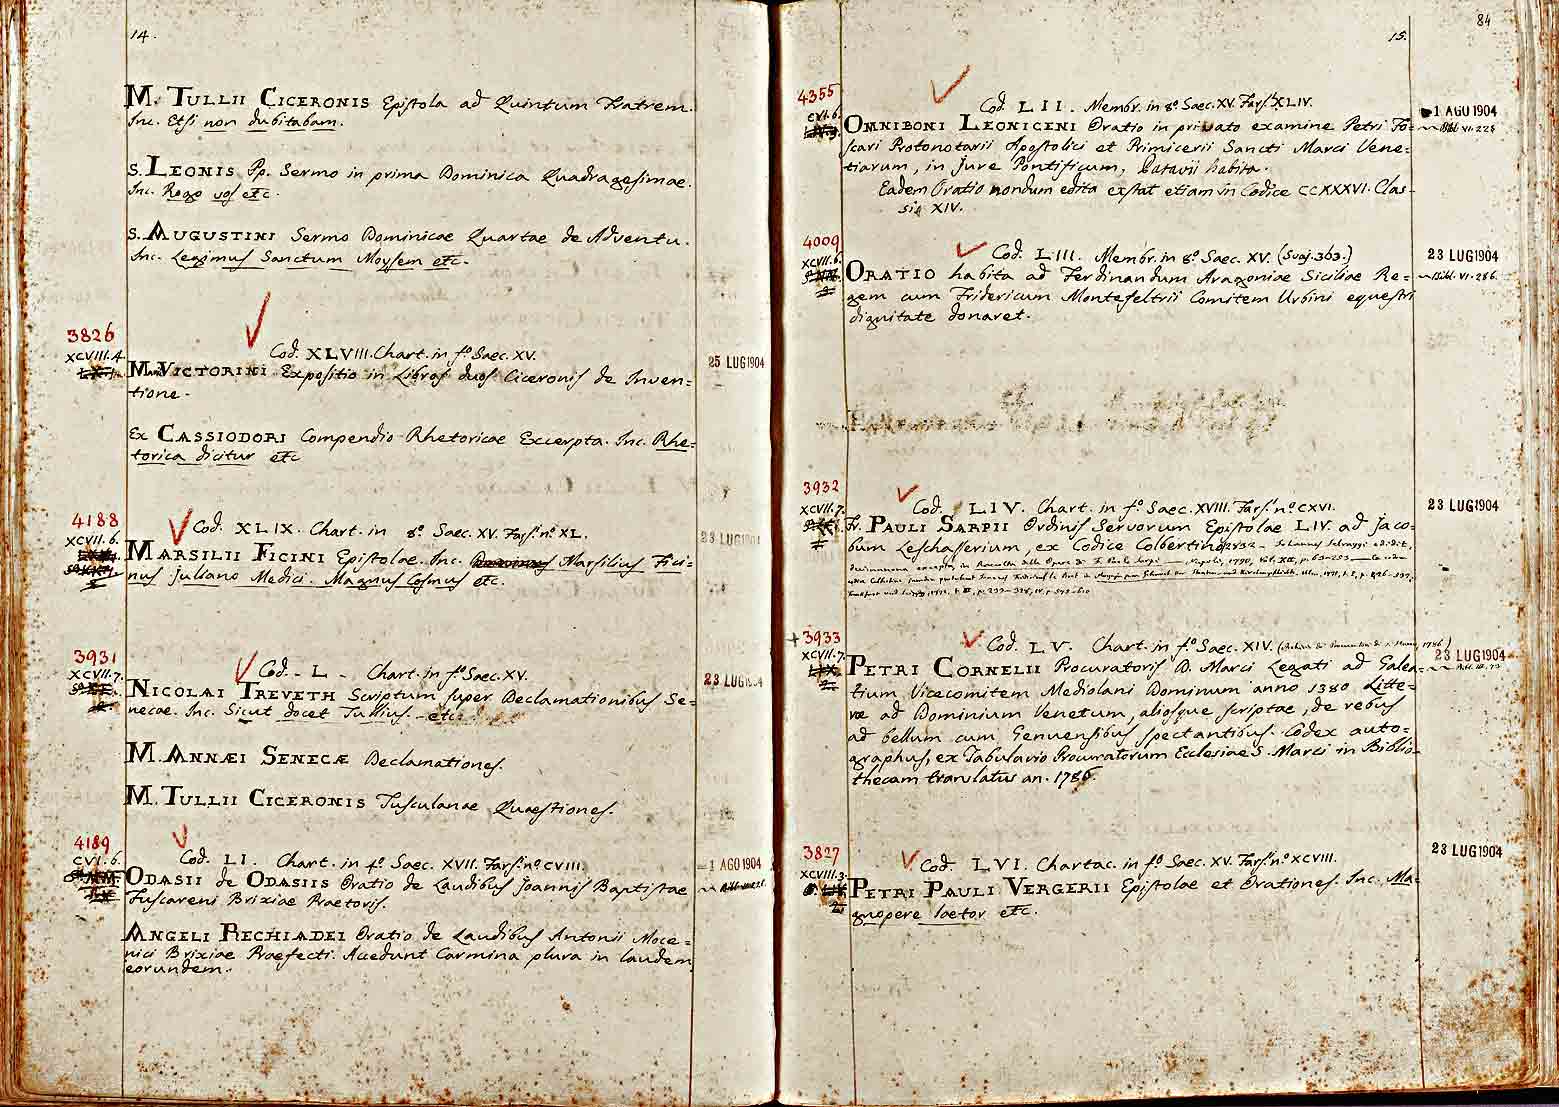 14.
M. TULLII CICERONIS Epistola ad Quintum Fratrem.
Inc. Etsi non dubitabam.
S. LEONIS Pp. Sermo in prima Dominica Quadragesimae.
Inc. Rogo vos etc.
S. AUGUSTINI Sermo Dominicae Quartae de Adventu.
Inc. Legimus Sanctum Moysem etc.
3826
XCVIII.4.
Cod. XLVIII. Chart. in fº. Saec. XV.
25 LUG 1904
VICTORINI Expositio in Libros duos Ciceronis de Inven=
tione.
Ex CASSIODORI Compendio Rhetoricae Excerpta. Inc. Rhe=
torica dicitur etc
4188
XCVII.6.
Cod. XLIX. Chart. in 8º. Saec. XV. Fars. nº XL.
23 LUG 1904
MARSILII FICINI Epistolae. Inc. Marsilius Fici=
nus Juliano Medici. Magnus Cosmus etc.
3931
XCVII.7.
Cod. L. Chart. in fº. Saec. XV.
23 LUG
NICOLAI TREVETH Scriptum super Declamationibus Se=
necae. Inc. Sicut docet Tullius etc.
M. ANNÆI SENECÆ Declamationes.
M. TULLII CICERONIS Tusculanae Quaestiones.
4189
CVI.6.
Cod. LI. Chart. in 4º. Saec. XVII. Fars. nº CVIII.
1 AGO 1904
ODASII de ODASIIS Oratio de Laudibus Joannis Baptistae
Fuscareni Brixiae Praetoris.
ANGELI RECHIADEI Oratio de Laudibus Antonii Moce=
nici Brixiae Praefecti. Accedunt Carmina plura in laudem
eorundem.
84
15.
4355
CVI.6.
Cod. LII. Membr. in 8º. Saec. XV. Fars. XLIV.
1 AGO 1904
OMNIBONI LEONICENI Oratio in privato examine Petri Fo=
scari Protonotarii Apostolici et Primicerii Sancti Marci Vene=
tiarum, in Jure Pontificum, Patavii habita.
Eadem Oratio nondum edita exstat etiam in Codice CCXXXVI. Clas=
sis XIV.
Bibl. VI. 228
4009
XCVII.6.
Cod. LIII. Membr. in 8º. Saec. XV. (Svaj. 363.)
23 LUG 1904
Bibl. VI. 286.
ORATIO habita ad Ferdinandum Aragoniae Siciliae Re=
gem cum Fridericum Montefeltrii Comitem Urbini equestri
dignitate donaret.
3932
XCVII.7.
Cod. LIV. Chart. in fº. Saec. XVIII. Fars. nº CXVI.
23 LUG 1904
Fr. PAULI SARPII Ordinis Servorum Epistolae LIV. ad Jaco=
bum Leschasserium, ex Codice Colbertino
3933
XCVII.7.
Cod. LV. Chart. in fº. Saec. XIV.
23 LUG 1904
PETRI CORNELII Procuratoris D. Marci Legati ad Galea=
tium Vicecomitem Mediolani Dominum anno 1380 Litte=
ræ ad Dominium Venetum, aliosque scriptae, de rebus
ad bellum cum Genuensibus spectantibus. Codex auto=
graphus, ex Tabulario Procuratorum Ecclesiae S. Marci in Biblio=
thecam translatus an. 1786.
3827
XCVIII.3.
Cod. LVI. Chartac. in fº. Saec. XV. Fars. nº XCVIII.
23 LUG 1904
PETRI PAULI VERGERII Epistolae et Orationes. Inc. Ma=
gnopere laetor etc.